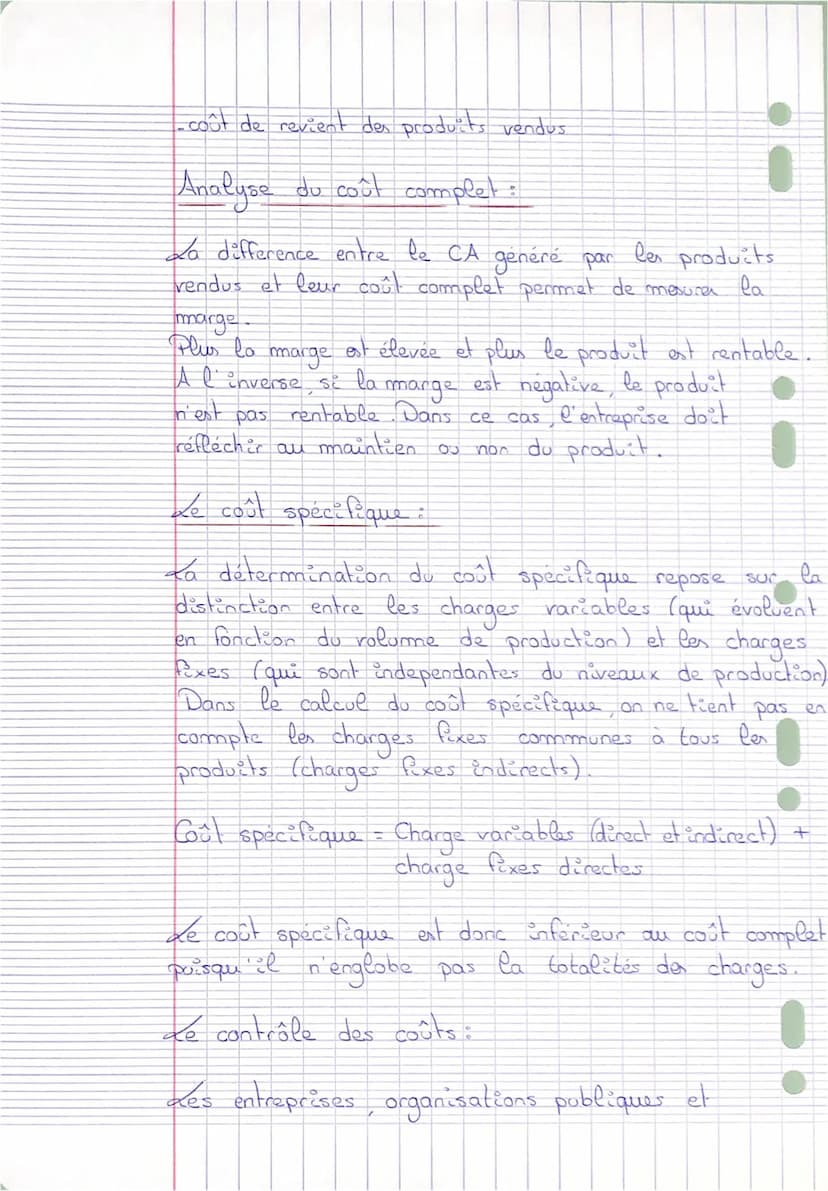 - coût de revient des produits vendus
Analyse du coût complet :
La différence entre le CA généré par les produits
vendus et leur coût complet permet de mesurer la
marge.
Plus la marge est élevée et plus le produit est rentable.
A l'inverse, si la marge est négative, le produit
n'est pas rentable. Dans ce cas, l'entreprise doit
réfléchir au maintien ou non du produit.
Le coût spécifique :
La détermination du coût spécifique repose sur la
distinction entre les charges variables (qui évoluent
en fonction du volume de production) et les charges
fixes (qui sont independantes du niveaux de production)
Dans le calcul du coût spécifique, on ne tient pas en
compte les charges fixes communes à tous les
produits (charges fixes indirects).
Coût spécifique = Charge variables (direct et indirect) +
charge fixes directes
Le coût spécifique est donc inférieur au coût complet
puisqu'il n'englobe pas la totalités des charges.
Le contrôle des coûts :
Les entreprises, organisations publiques et